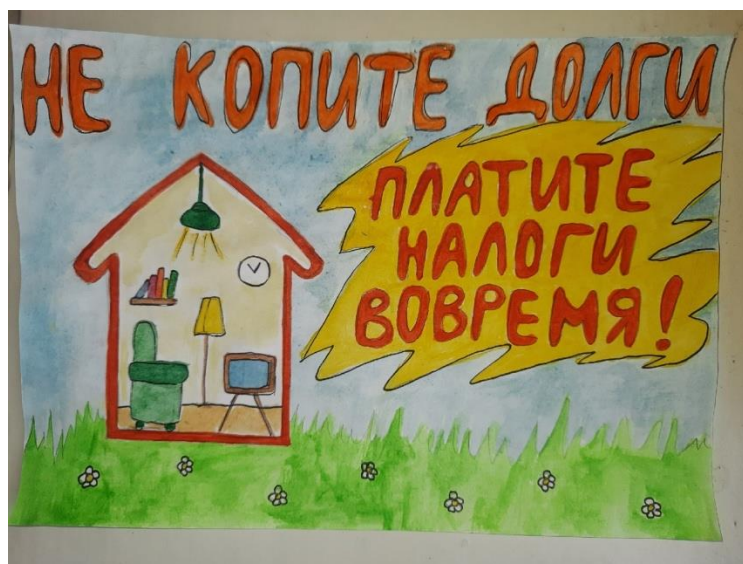 НЕ КОПИТЕ ДОЛГИ
ПЛАТИТЕ
НАЛОГИ
ВОВРЕМЯ!